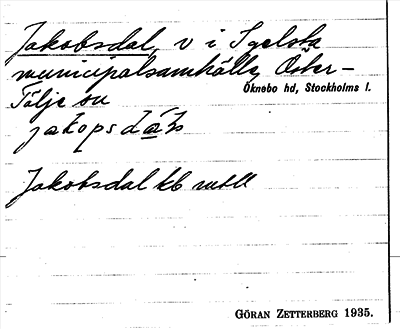 Jakobsdal, v i Igelsta
municipalsamhälle, Öster-
Tälje sn
Öknebo hd, Stockholms l.
Jakobsdal kb
GÖRAN ZETTERBERG 1935.